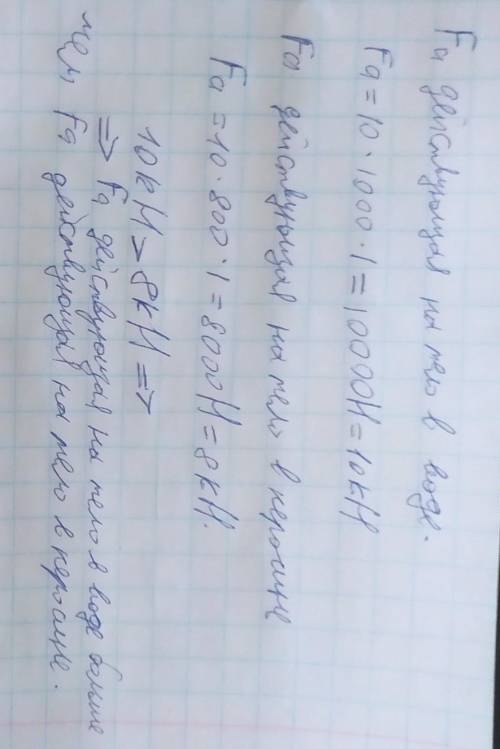 Fa действующая на тело в воде.
Fa = 10 · 1000 · 1 = 10000Н = 10кН
Fa действующая на тело в керосине
Fa = 10 · 800 · 1 = 8000Н = 8кН.
10кН > 8кН =>
=> Fa действующая на тело в воде больше
чем Fa действующая на тело в керосине.